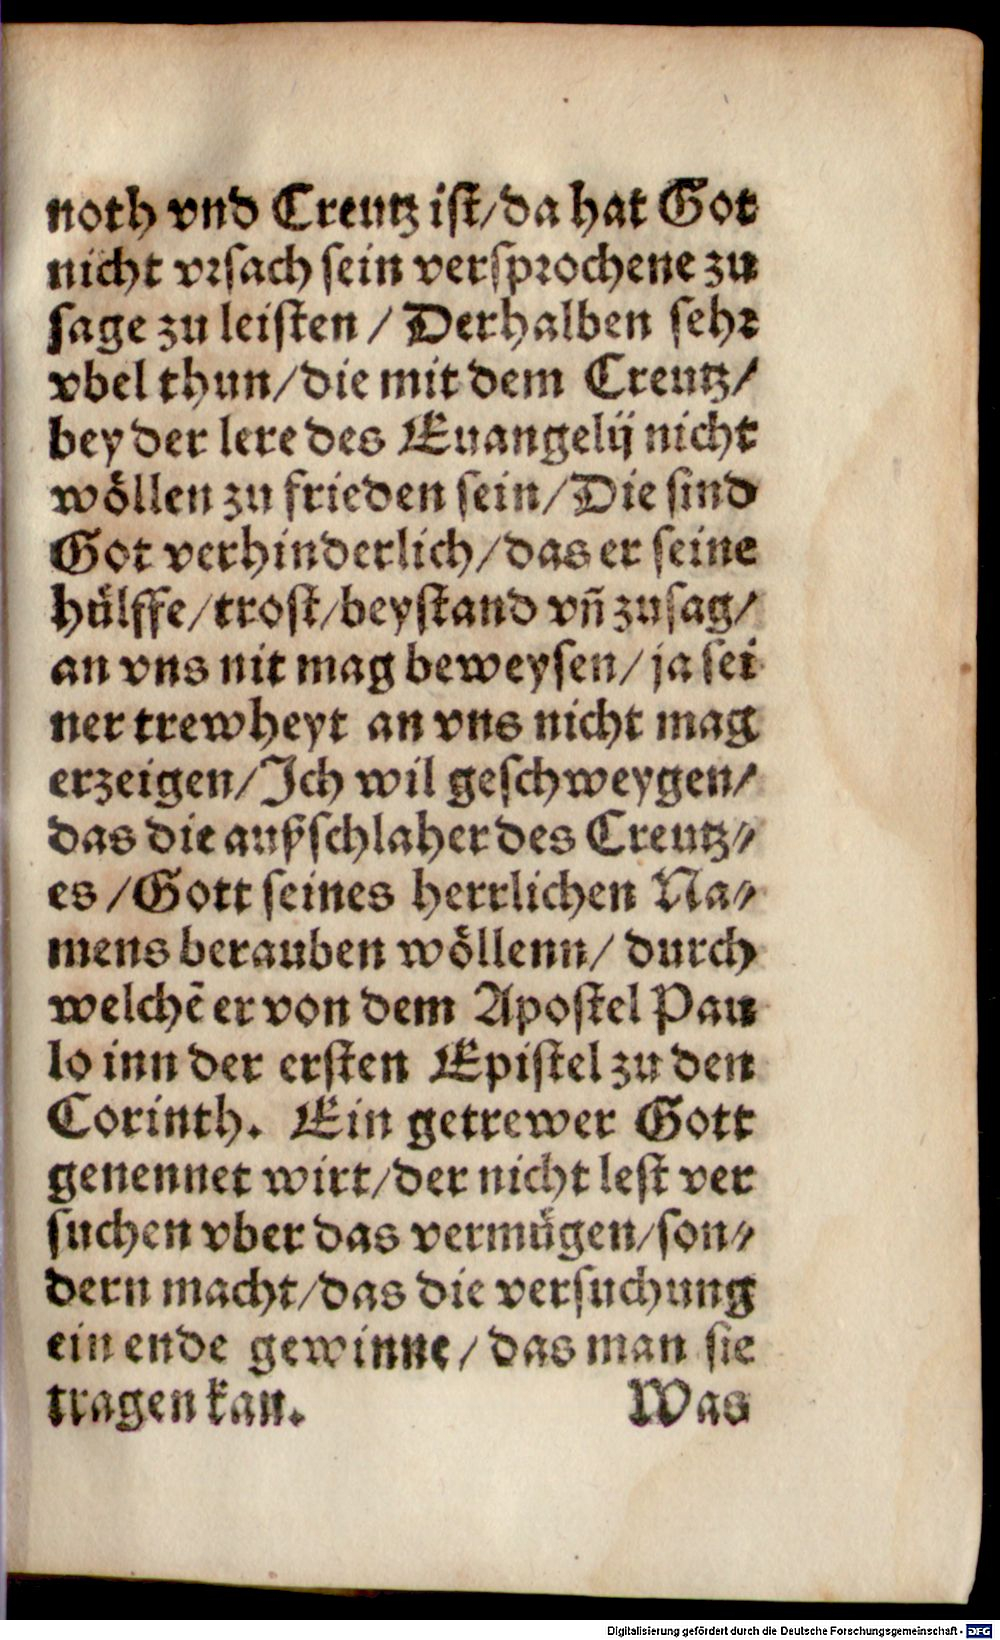 noth vnd Creutz ist/da hat Got
nicht vrsach sein versprochene zu
sage zu leisten / Derhalben sehr
vbel thun/die mit dem Creutz/
bey der lere des Euangelij nicht
wöllen zu frieden sein/Die sind
Got verhinderlich/das er seine
hülffe/trost/beystand vn̄ zusag/
an vns nit mag beweysen/ja sei
ner trewheyt an vns nicht mag
erzeigen/Ich wil geschweygen/
das die außschlaher des Creutz⸗
es /Gott seines herrlichen Na⸗
mens berauben wöllenn/ durch
welchē er von dem Apostel Pau
lo inn der ersten Epistel zu den
Corinth. Ein getrewer Gott
genennet wirt/der nicht lest ver
suchen vber das vermügen/son⸗
dern macht/das die versuchung
ein ende gewinne/das man sie
tragen kan. Was
Digitalisierung gefördert durch die Deutsche Forschungsgemeinschaft - DFG